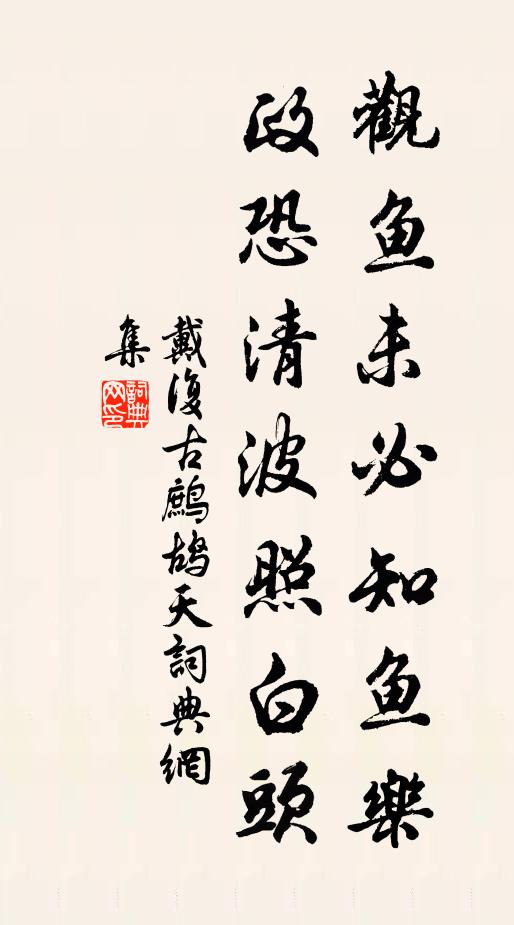 觀鱼未必知鱼樂
政恐清波照白頭
戴復古鷓鴣天詞典網
集
詞典网印